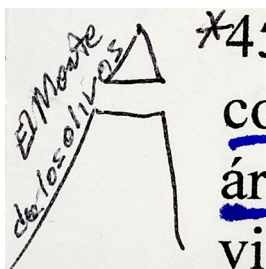 El Monte
de los olivos
*45
co
ár
vi